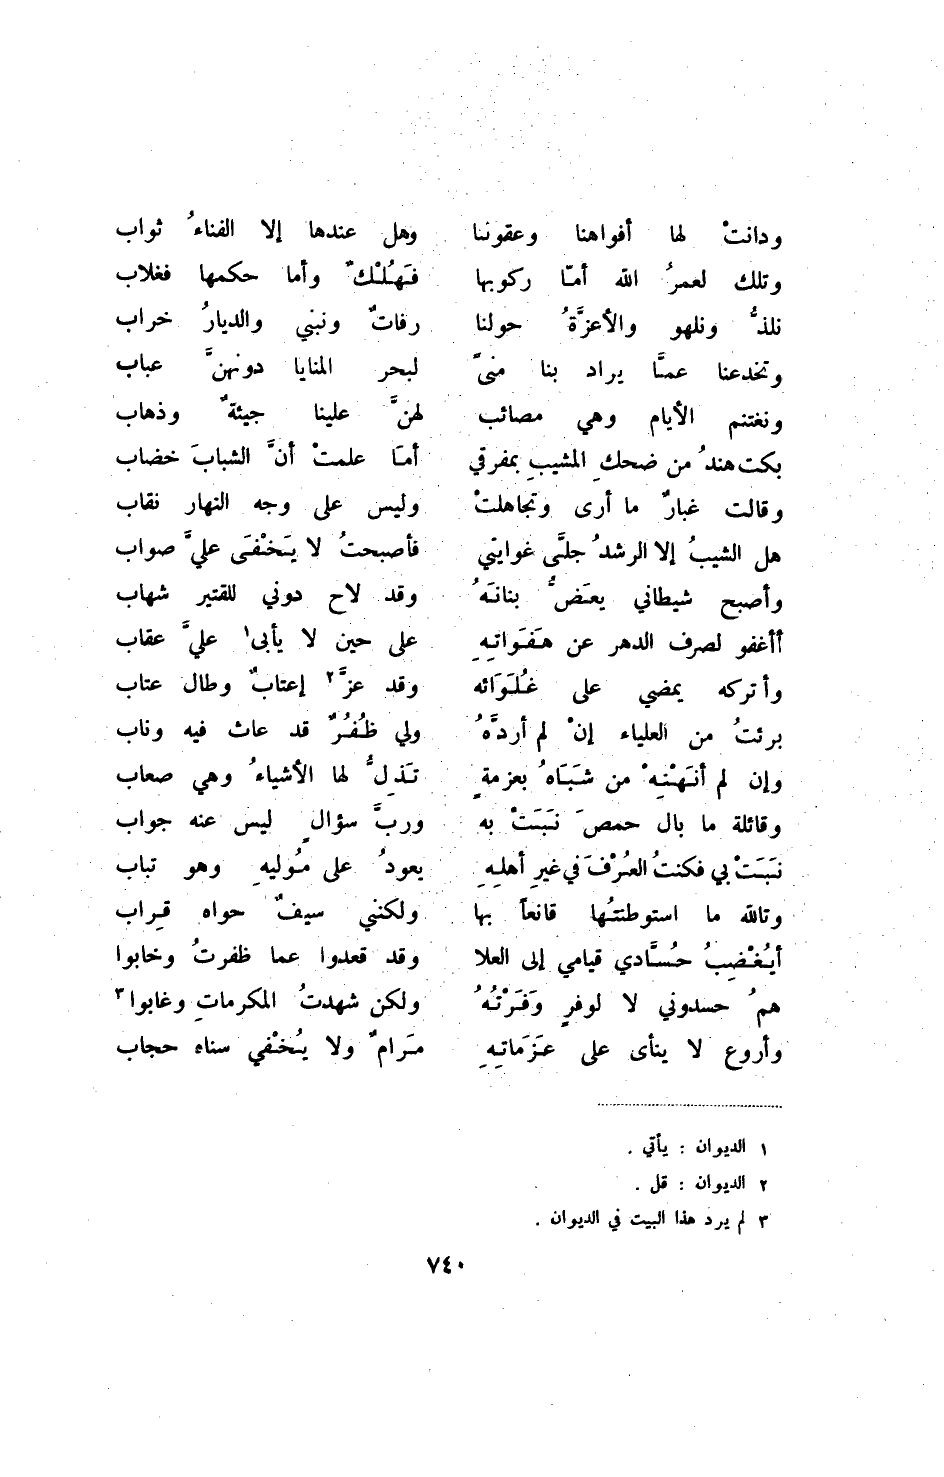 ودانتْ لها أفواهنا وعقوننا وهل عندها إلا الفناءُ ثواب
وتلك لعمرُ الله أمّا ركوبها فَهُلْكٌ وأما حكمها فغلاب
نلذُّ ونلهو والأعزَّةُ حولنا رفاتٌ ونبني والديارُ خراب
وتخدعنا عمَّا يراد بنا منىً لبحر المنايا دونهنَّ عباب
ونغتنم الأيام وهي مصائب لهنَّ علينا جيئةٌ وذهاب
بكت هندُ من ضحكِ المشيبِ بمفرقي أمَا علمتْ أنَّ الشبابَ خضاب
وقالت غبارٌ ما أرى وتجاهلتْ وليس على وجه النهار نقاب
هل الشيبُ إلا الرشدُ جلَّى غوايتي فأصبحتُ لا يَخْفَى عليَّ صواب
وأصبح شيطاني يعَضُّ بنانَهُ وقد لاح دوني للقتير شهاب
أأغفو لصرف الدهر عن هَفَواتِهِ على حين لا يأبى١ عليَّ عقاب
وأتركه يمضي على غُلَوَائه وقد عزَّ٢ إعتابٌ وطال عتاب
برئتُ من العلياء إنْ لم أردَّهُ ولي ظُفُرٌ قد عاث فيه وناب
وإن لم أنَهْنِهْ من شَبَاهُ بعزمةٍ تَذِلُّ لها الأشياءُ وهي صعاب
وقائلة ما بال حمصَ نَبَتْ به وربَّ سؤالٍ ليس عنه جواب
نبَتْ بي فكنتُ العُرْفَ في غيرِ أهلِهِ يعودُ على مُوليهِ وهو تباب
وتالله ما استوطنتُها قانعاً بها ولكنني سيفٌ حواه قِراب
أيُغْضِبُ حُسَّادي قيامي إلى العلا وقد قعدوا عما ظفرتُ وخابوا
همُ حسدوني لا لوفرٍ وَفَرْتُهُ ولكن شهدتُ المكرماتِ وغابوا٣
وأروع لا ينأى على عَزَماتِهِ مَرامٌ ولا يُخْفي سناه حجاب
١ الديوان : يأتي .
٢ الديوان : قل .
٣ لم يرد هذا البيت في الديوان .
٧٤٠